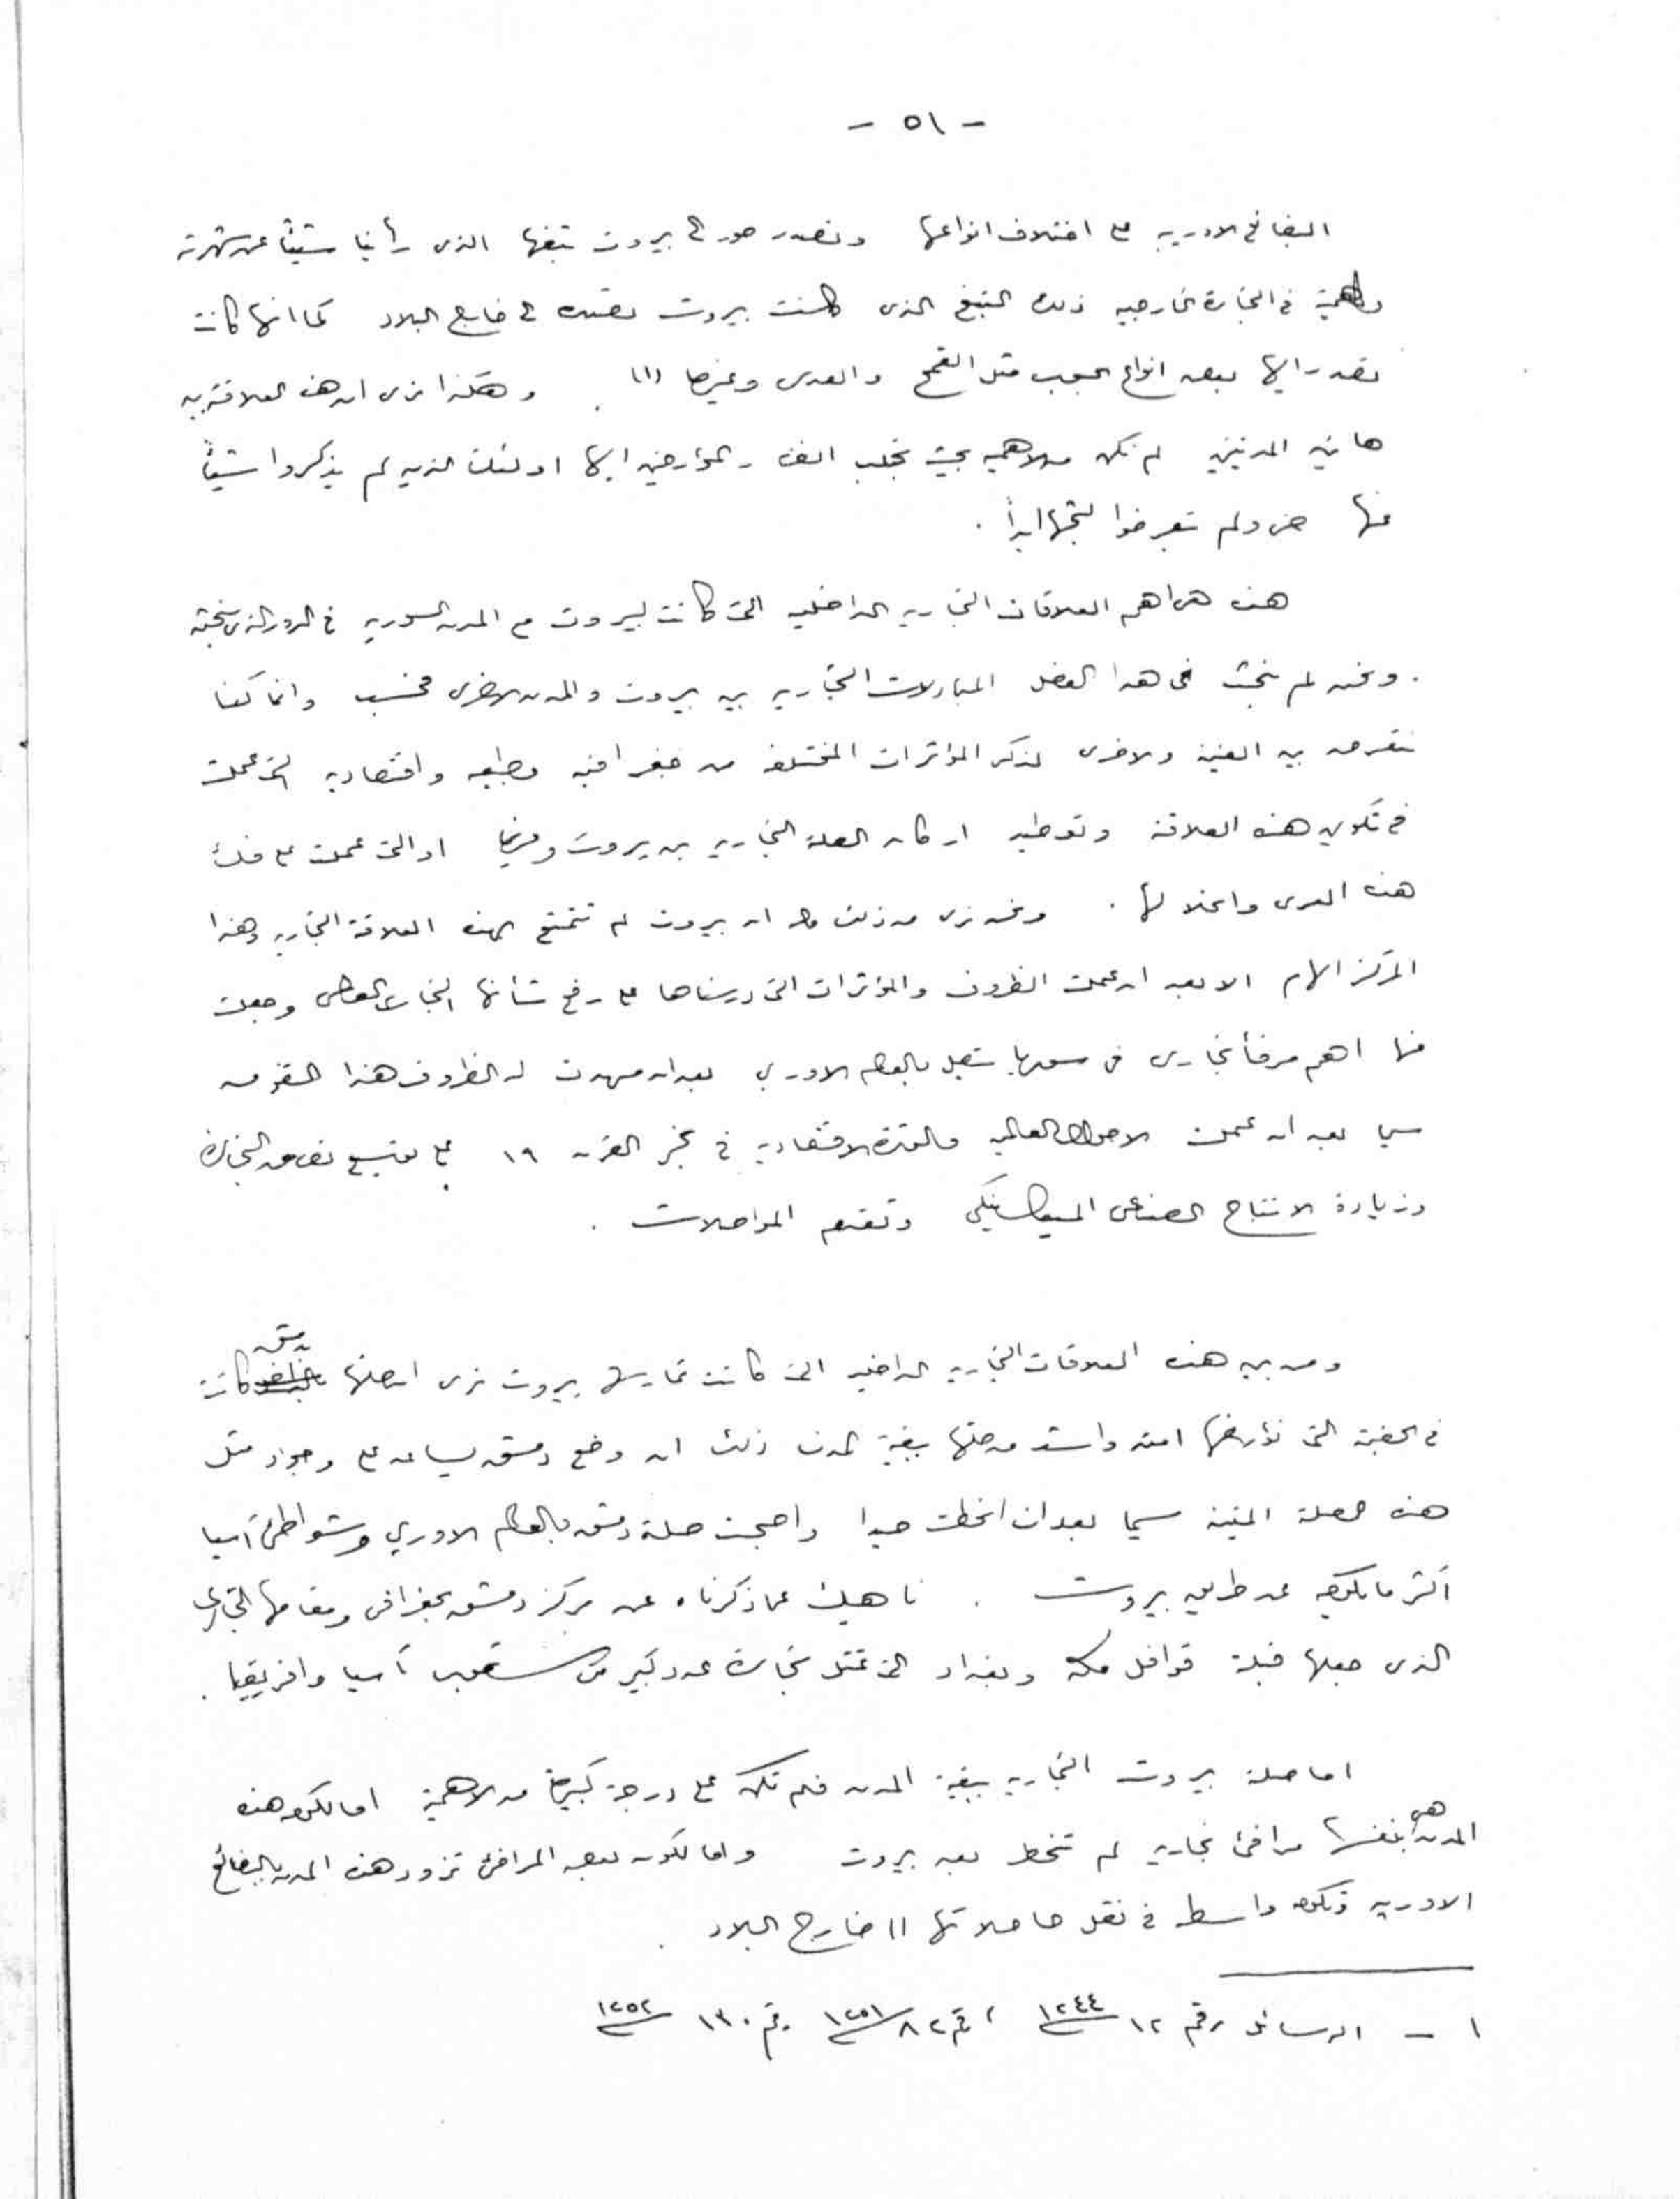 - ٥١ -
البضائع الاوربيه على اختلاف انواعها وتصدر صور الى بيروت تبغها الذى رأينا شيئاً عن شهرته
واهميته في التجارة الخارجيه ذلك التبغ الذى كانت بيروت تصدره الى خارج البلاد كما انها كانت
تصدر اليها بعض انواع الحبوب مثل القمح والعدس وغيرها (١) . وهكذا نرى ان هذه العلاقة بين
هاتين المدينتين لم تكن من الاهميه بحيث تجلب انظار المؤرخين اليها اولئك الذين لم يذكروا شيئاً
عنها حتى ولم يتعرضوا لبحثها ابداً .
هذه هى اهم العلاقات التجاريه الداخليه التى كانت لبيروت مع المدن السوريه في الدور الذى نبحثه
. ونحن لم نبحث فى هذا الفصل المبادلات التجاريه بين بيروت والمدن الاخرى فحسب وانما كنا
نتعرض بين الفينة والاخرى لذكر المؤثرات المختلفه من جغرافيه وطبيعيه واقتصاديه التى عملت
فى تكوين هذه العلاقة وتوطيد اركان الصلة التجاريه بين بيروت وغيرها او التى عملت على فك
هذه العرى وانحلالها . ونحن نرى من ذلك ان بيروت لم تتمتع بهذه العلاقة التجاريه وهذا
المركز الهام الا بعد ان عملت الظروف والمؤثرات التى درسناها على رفع شأنها التجارى وجعلت
منها اهم مرفأ تجارى فى سوريا يتصل بالعالم الاوربي بعد ان مهدت له الظروف هذا التفوق
سيما بعد ان عملت الاحوال العالميه والثورة الاقتصاديه في فجر القرن ١٩ على توسيع نطاق التجارة
وزيادة الانتاج الصناعى الميكانيكى وتقدم المواصلات .
ومن بين هذه العلاقات التجاريه الداخليه التى كانت تمارسها بيروت نرى ان صلتها بدمشق كانت
فى الحقبة التى نؤرخها امتن واشد من صلتها ببقية المدن ذلك ان وضع دمشق يساعد على وجود مثل
هذه الصلة المتينة سيما بعد ان انحطت صيدا واصبحت صلة دمشق بالعالم الاوربي وشواطئ آسيا
اكثر ما تكون عن طريق بيروت . ناهيك عما ذكرناه عن مركز دمشق الجغرافى ومقامها التجارى
الذى جعلها قبلة قوافل مكة وبغداد التى تمثل تجارة عدد كبير من شعوب آسيا وافريقيا .
اما صلة بيروت التجاريه ببقية المدن فلم تكن على درجة كبيرة من الاهمية اما لكون هذه
المدن هى بنفسها مرافئ تجاريه لم تنحط بعد بيروت واما لكون بعض المرافئ تزود هذه المدن بالبضائع
الاوربيه وتكون واسطة في نقل حاصلاتها الى خارج البلاد .
١ - الرسائل رقم ١٢ ١٢٤٤ ، رقم ٨٢ ١٢٥١ رقم ١٣٠ ١٢٥٢